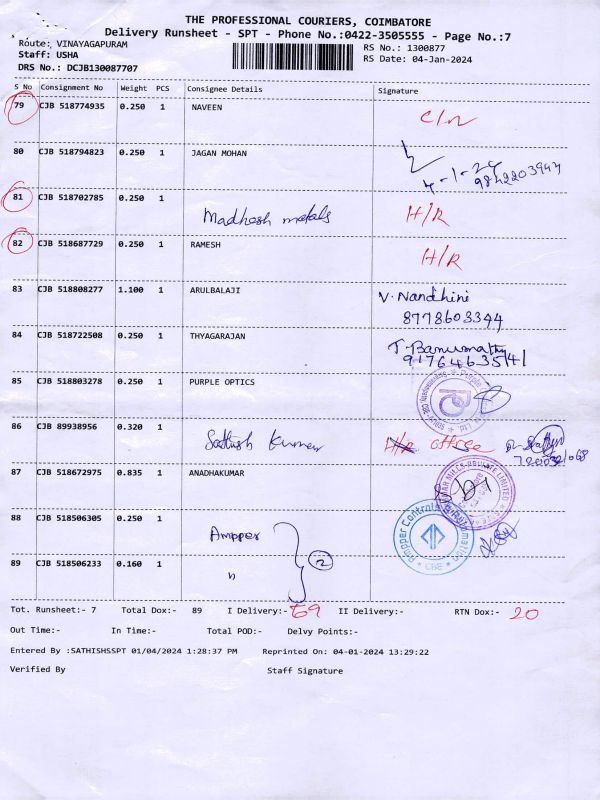 THE PROFESSIONAL COURIERS, COIMBATORE
Delivery Runsheet - SPT - Phone No.:0422-3505555 - Page No.:7
Route: VINAYAGAPURAM
RS No.: 1300877
Staff: USHA
RS Date: 04-Jan-2024
DRS No.: DCJB130087707
S No Consignment No Weight PCS Consignee Details Signature
79 CJB 518774935 0.250 1 NAVEEN C/N
80 CJB 518794823 0.250 1 JAGAN MOHAN
4-1-24
9842203943
81 CJB 518702785 0.250 1 Madhesh metals H/R
82 CJB 518687729 0.250 1 RAMESH H/R
83 CJB 518808277 1.100 1 ARULBALAJI V. Nandhini
8778603344
84 CJB 518722508 0.250 1 THYAGARAJAN T. Banumathy
9176463541
85 CJB 518803278 0.250 1 PURPLE OPTICS
86 CJB 89938956 0.320 1 Sathish Kumar H/R office
87 CJB 518672975 0.835 1 ANADHAKUMAR
88 CJB 518506305 0.250 1 Ampper
Ampper Controls & Automation
CBE
89 CJB 518506233 0.160 1 "
2
Tot. Runsheet:- 7 Total Dox:- 89 I Delivery:- 69 II Delivery:- RTN Dox:- 20
Out Time:- In Time:- Total POD:- Delvy Points:-
Entered By :SATHISHSSPT 01/04/2024 1:28:37 PM Reprinted On: 04-01-2024 13:29:22
Verified By Staff Signature